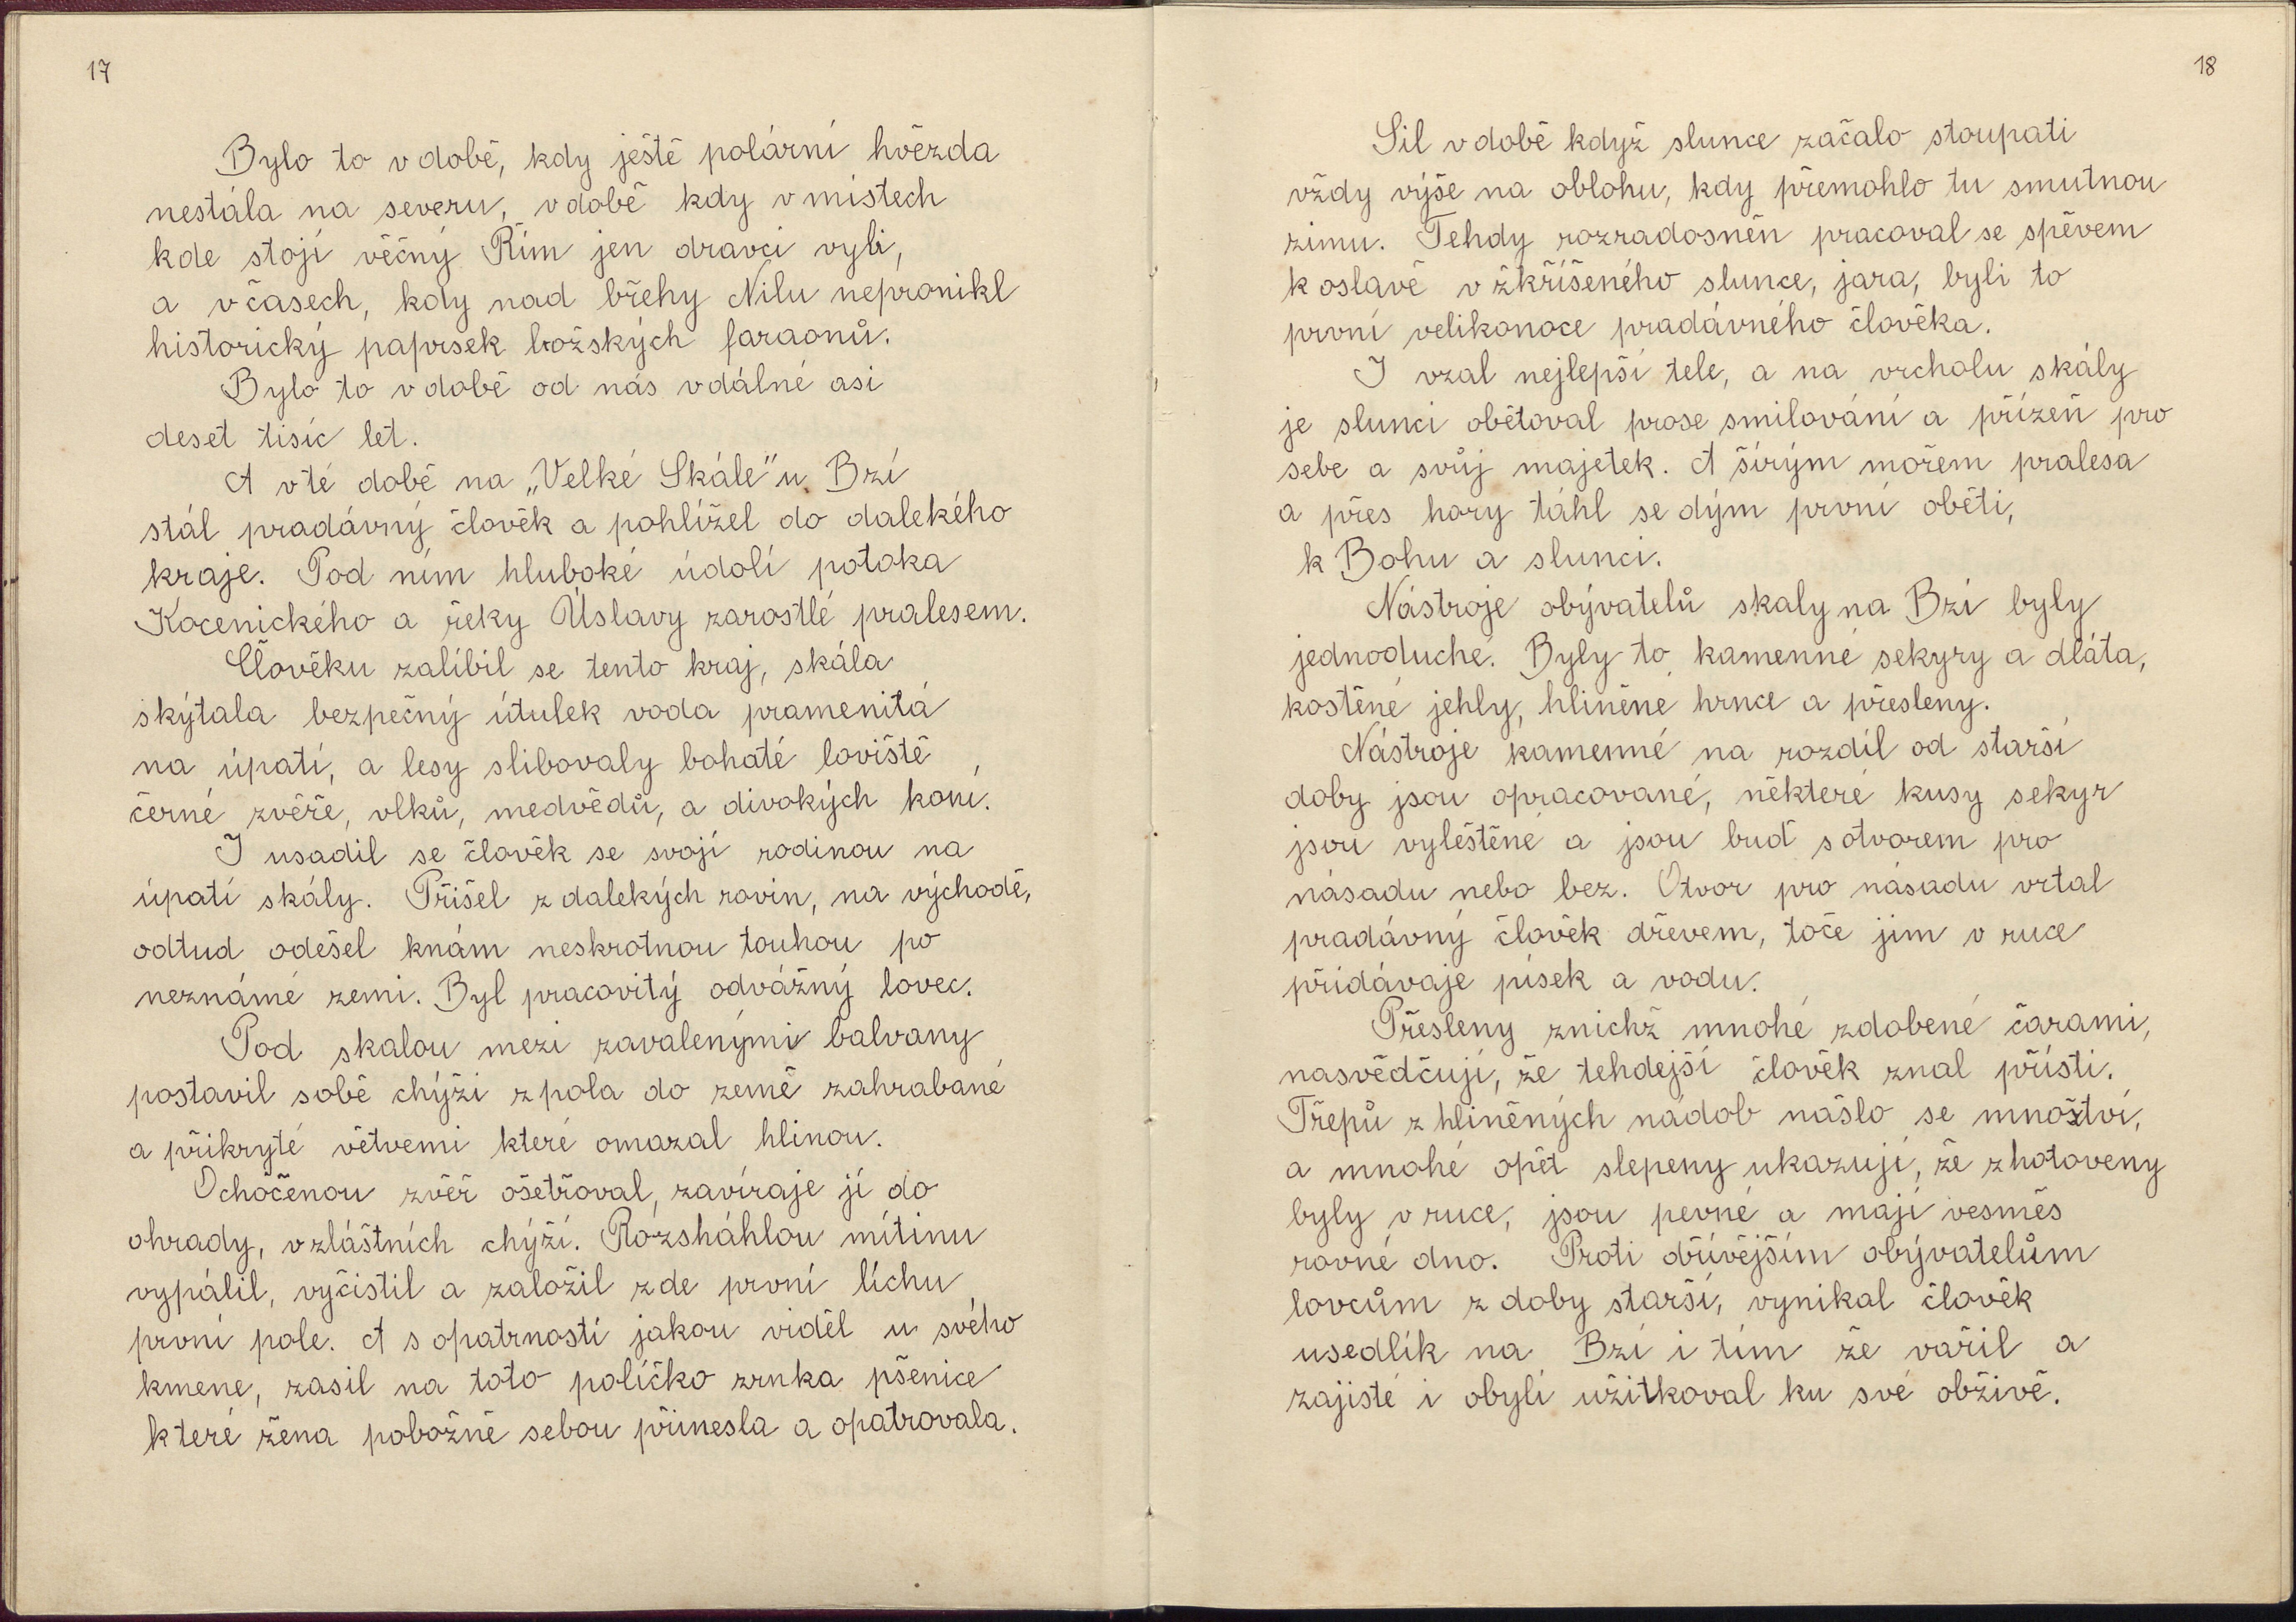 17
Bylo to v době, kdy ještě polární hvězda
nestála na severu, v době kdy v místech
kde stojí věčný Řím jen dravci vyli,
a v časech, kdy nad břehy Nilu nepronikl
historický paprsek božských faraonů.
Bylo to v době od nás vdálné asi
deset tisíc let.
A v té době na „Velké Skále" u Bzí
stál pradávný člověk a pohlížel do dalekého
kraje. Pod ním hluboké údolí potoka
Kocenického a řeky Úslavy zarostlé pralesem.
Člověku zalíbil se tento kraj, skála
skýtala bezpečný útulek voda pramenitá
na úpatí, a lesy slibovaly bohaté loviště
černé zvěře, vlků, medvědů, a divokých koní.
I usadil se člověk se svojí rodinou na
úpatí skály. Přišel z dalekých rovin, na východě,
odtud odešel knám neskrotnou touhou po
neznámé zemi. Byl pracovitý odvážný lovec.
Pod skalou mezi zavalenými balvany
postavil sobě chýži zpola do země zahrabané
a přikryté větvemi které omazal hlinou.
Ochočenou zvěř ošetřoval, zavíraje jí do
ohrady, vzláštních chýží. Rozsháhlou mítinu
vypálil, vyčistil a založil zde první líchu,
první pole. A s opatrností jakou viděl u svého
kmene, zasil na toto políčko zrnka pšenice
které žena pobožně sebou přinesla a opatrovala.
18
Sil v době když slunce začalo stoupati
vždy výše na oblohu, kdy přemohlo tu smutnou
zimu. Tehdy rozradosněn pracoval se spěvem
k oslavě v žkříšeného slunce, jara, byli to
první velikonoce pradávného člověka.
I vzal nejlepší tele, a na vrcholu skály
je slunci obětoval prose smilování a přízeň pro
sebe a svůj majetek. A šírým mořem pralesa
a přes hory táhl se dým první oběti,
k Bohu a slunci.
Nástroje obývatelů skaly na Bzí byly
jednoduché. Byly to kamenné sekyry a dláta,
kostěné jehly, hliněné hrnce a přesleny.
Nástroje kamenné na rozdíl od starší
doby jsou opracované, některé kusy sekyr
jsou vyleštěné a jsou buď s otvorem pro
násadu nebo bez. Otvor pro násadu vrtal
pradávný člověk dřevem, toče jim v ruce
přidávaje písek a vodu.
Přesleny znichž mnohé zdobené čarami,
nasvědčují, že tehdejší člověk znal přísti.
Třepů z hliněných nádob našlo se množtví,
a mnohé opět slepeny ukazují, že zhotoveny
byly v ruce, jsou pevné a mají vesměs
rovné dno. Proti dřívějším obývatelům
lovcům z doby starší, vynikal člověk
usedlík na Bzí i tím že vařil a
zajisté i obylí užitkoval ku své obživě.